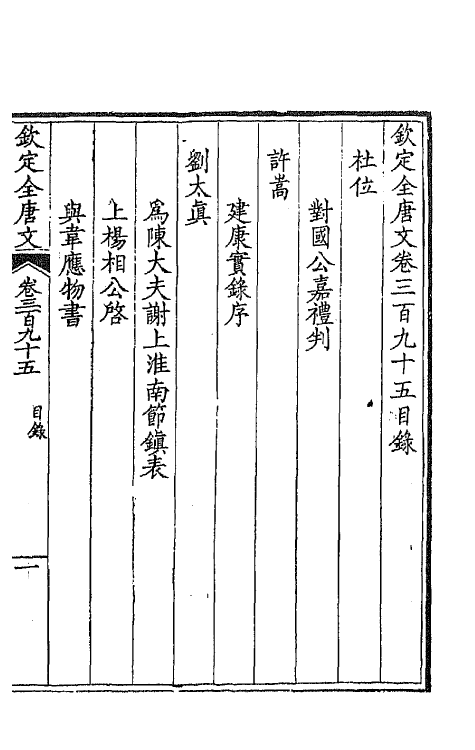 欽定全唐文卷三百九十五目錄
杜位
對國公嘉禮判
許嵩
建康實錄序
劉太眞
爲陳大夫謝上淮南節鎭表
上楊相公啓
與韋應物書
欽定全唐文
卷三百九十五
目錄
一